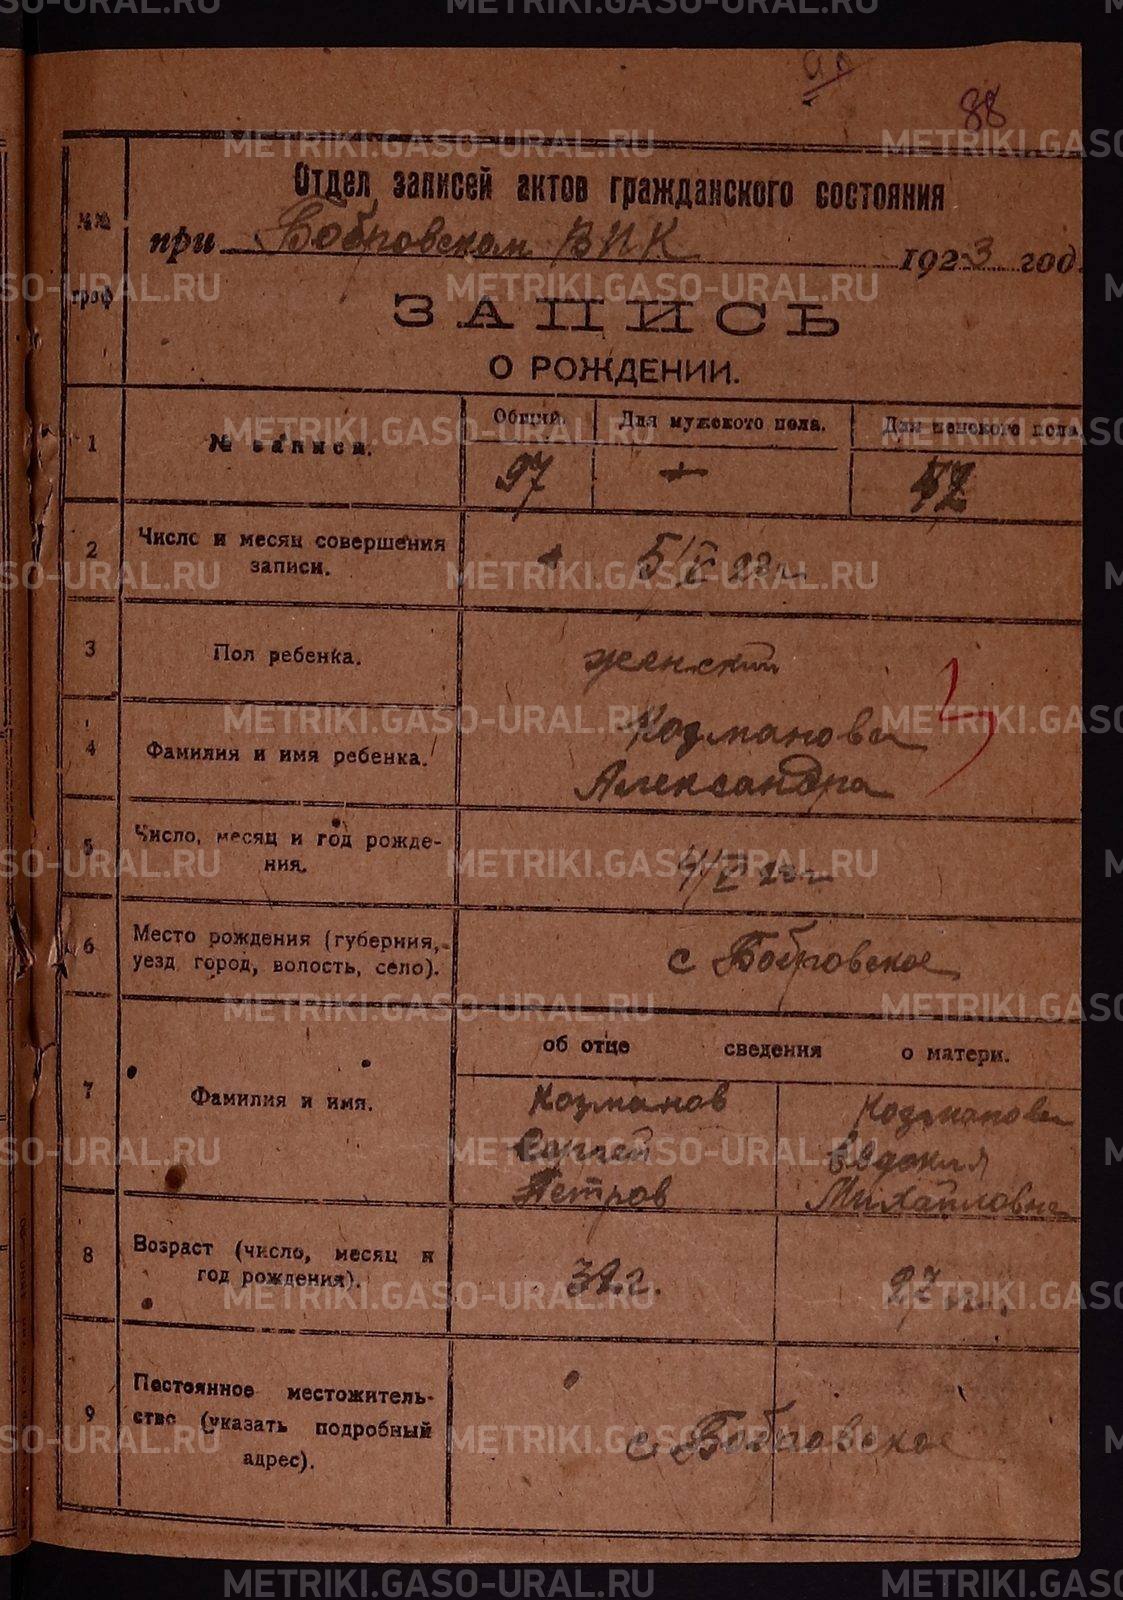 88
Отдел записей актов гражданского состояния
при Бобровском ВИК 1923 год.
№№ граф
ЗАПИСЬ
О РОЖДЕНИИ.
1 № записи.
Общий. Для мужского пола. Для женского пола
97 + 42
2 Число и месяц совершения
записи.
5/V 23 г
3 Пол ребенка.
женский
4 Фамилия и имя ребенка.
Козманова
Александра
5 Число, месяц и год рожде-
ния.
4/V
6 Место рождения (губерния,
уезд, город, волость, село).
с Бобровское
об отце сведения о матери.
7 Фамилия и имя.
Козманов Козманова
Сергей Евдокия
Петров Михайловна
8 Возраст (число, месяц и
год рождения).
32 г. 27
9 Постоянное местожитель-
ство (указать подробный
адрес).
с. Бобровское
METRIKI.GASO-URAL.RU